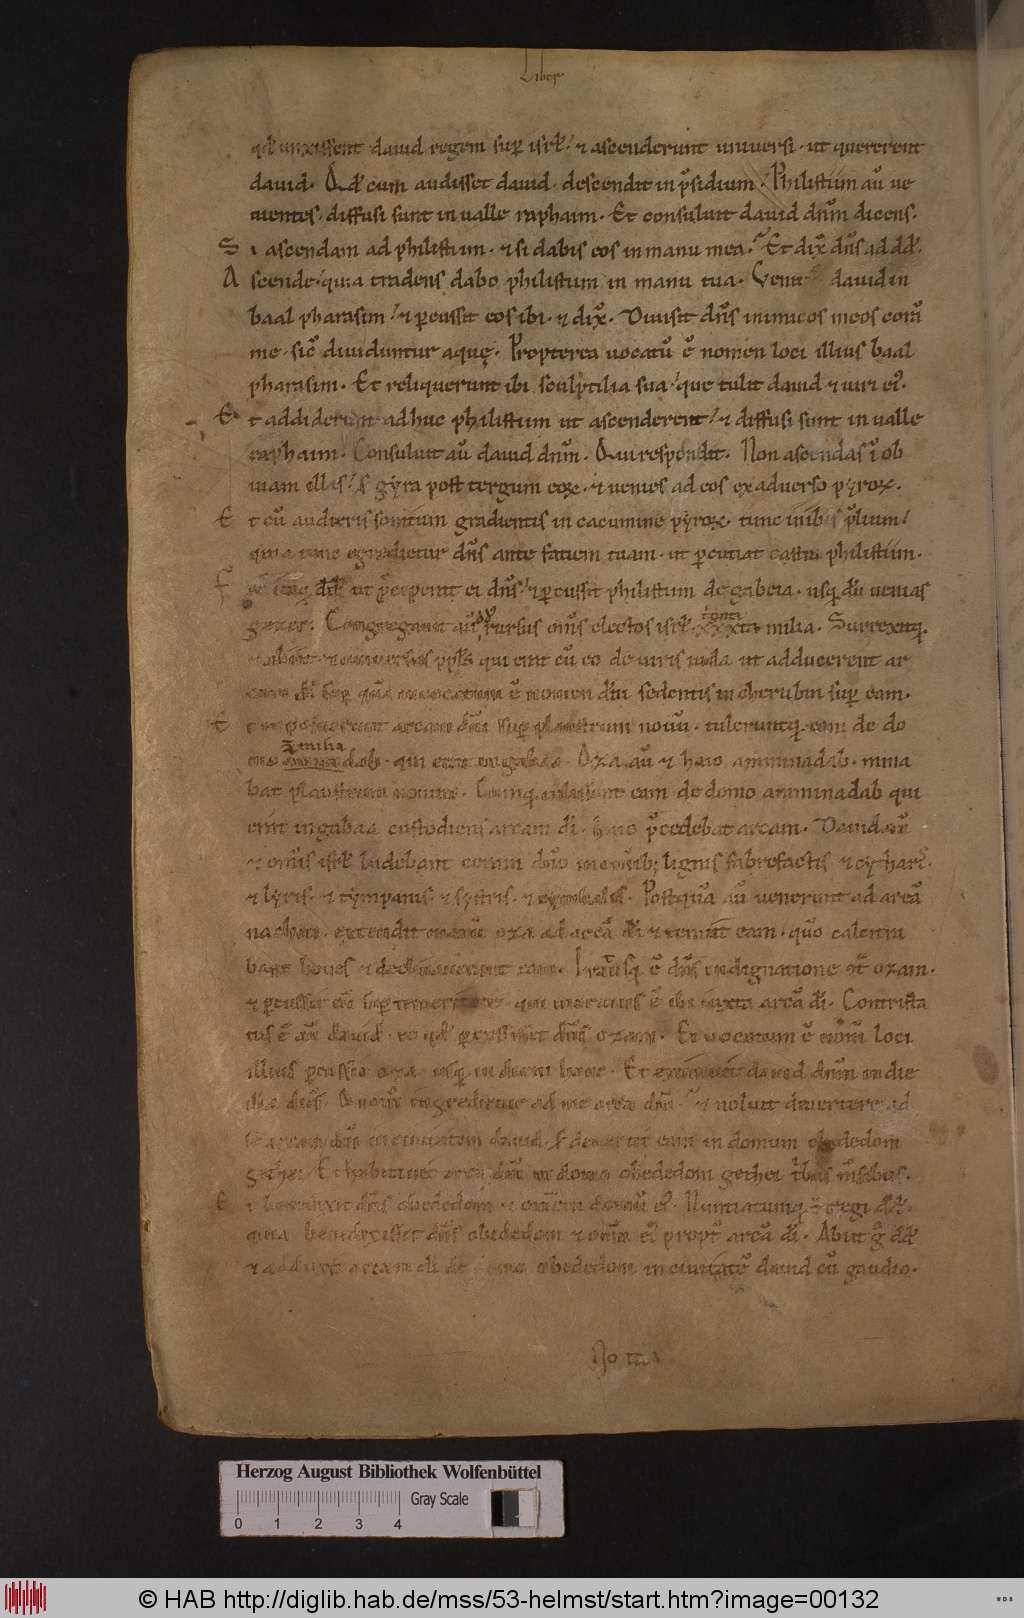 Liber
qd' unxissent dauid regem sup isrl'. & ascenderunt uniuersi. ut quererent
dauid. Qd' cum audisset dauid. descendit in p̄sidium. Philistiim aū ue
nientes. diffusi sunt in ualle raphaim. Et consuluit dauid dn̄m dicens.
Si ascendam ad philistiim. & si dabis eos in manu mea. Et dix̄ dn̄s ad dd'.
Ascende. quia tradens dabo philistiim in manu tua. Venit dauid in
baal pharasim. & percussit eos ibi. & dix̄. Diuisit dn̄s inimicos meos corā
me. sic̄ diuiduntur aquę. Propterea uocatū ē nomen loci illius baal
pharasim. Et reliquerunt ibi sculptilia sua. que tulit dauid & uiri ei'.
Et addiderunt adhuc philistiim ut ascenderent. & diffusi sunt in ualle
raphaim. Consuluit aū dauid dn̄m. Qui respondit. Non ascendas ī ob
uiam illis. s; gyra post tergum eoꝝ. & uenies ad eos ex aduerso pyroꝝ.
Et cū audieris sonitum gradientis in cacumine pyroꝝ. tunc inibis p̄lium.
quia tunc egredietur dn̄s ante faciem tuam. ut percutiat castra philistiim.
dd' ut p̄ceperat ei dn̄s. & percussit philistiim de gabaa. usq; dū uenias
gezer. Congregauit aū rursus om̄s electos isrl' milia. Surrexitq;
& uniuersus ppl's qui erat cū eo de uiris iuda ut adducerent ar
cam dī sup quā inuocatum ē nomen dn̄i sedentis in cherubin sup eam.
Et inposuerunt arcam dn̄i sup plaustrum nouū. tuleruntq; eam de do
mo aminadab. qui erat in gabaa. Oza aū & haio aminadab. mina
z milia
bat plaustrum nouum. Cumq; tulissent eam de domo aminadab qui
erat in gabaa custodiens arcam dī. haio p̄cedebat arcam. Dauid aū
& om̄s isrl' ludebant coram dn̄o in om̄ib; lignis fabrefactis & cythar̄.
& lyris. & tympanis. & systris. & cymbalis. Postquā aū uenerunt ad areā
nachon. extendit manū oza ad arcā dī & tenuit eam. quō calcitra
bant boues & declinauerunt eam. Iratusq; ē dn̄s indignatione ꝯt̄ ozam.
& percussit eū sup temeritate. qui mortuus ē ibi iuxta arcā dī. Contrista
tus ē aū dauid. eo qd' percussisset dn̄s ozam. Et uocatum ē nom̄ loci
illius percussio oza usq; in diem hanc. Et extimuit dauid dn̄m in die
illa dicēs. Quomō ingredietur ad me arca dn̄i. & noluit diuertere ad
se arcam dn̄i in ciuitatem dauid. s; diuertit eam in domum obededom
gethei. Et habitauit arca dn̄i in domo obededom gethei t'bus m̄sibus.
Et benedixit dn̄s obededom. & omēm domū ei'. Nuntiatumq; ē regi dd'.
quia benedixisset dn̄s obededom & om̄ia ei' propt' arcā dī. Abiit g° dd'
& adduxit arcam dī de domo obededom in ciuitatē dauid cū gaudio.
Herzog August Bibliothek Wolfenbüttel
Gray Scale
0 1 2 3 4
© HAB http://diglib.hab.de/mss/53-helmst/start.htm?image=00132